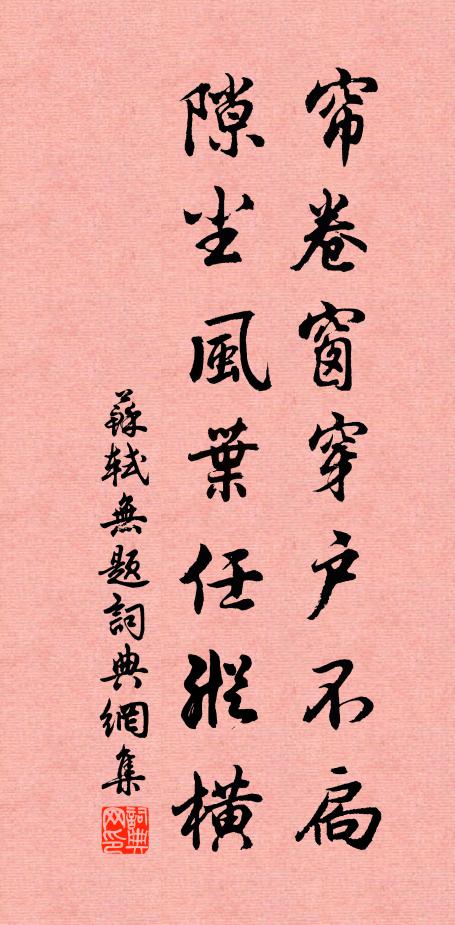 帘卷窗穿户不扃
隙尘風葉任縱橫
蘇軾無題詞典網集
詞典网印